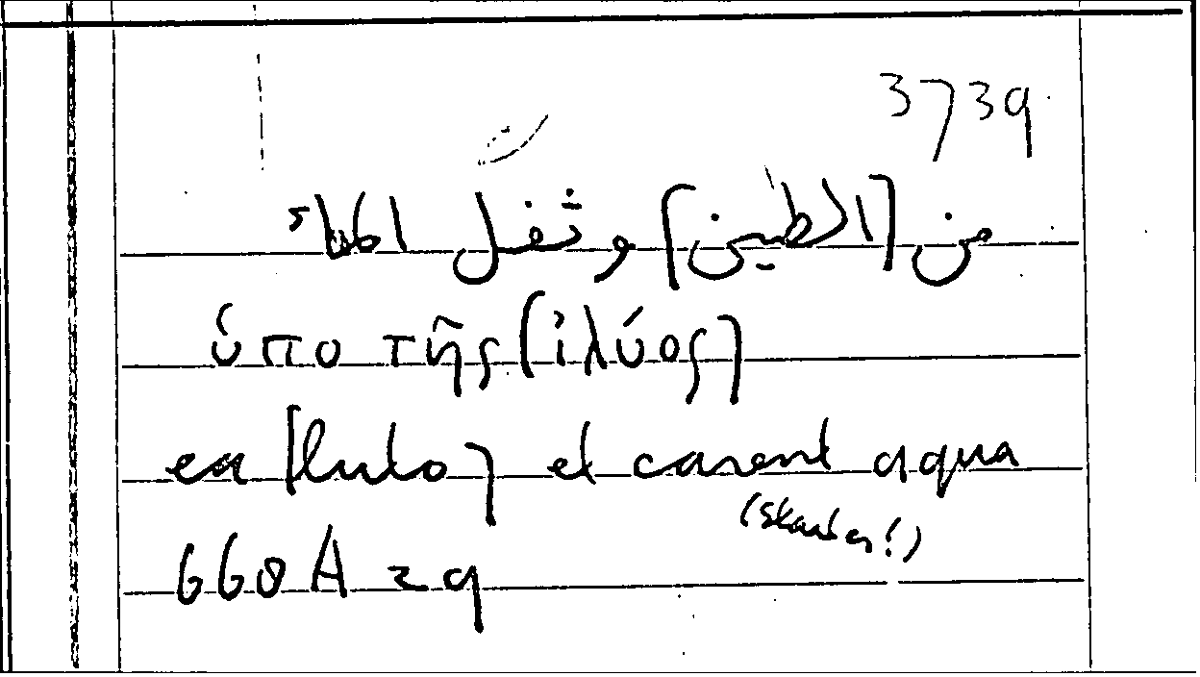 3739
من [الطين] وثفل الماء
ὑπο τῆς [ἰλύος]
ex [luto] et carent aqua
660A 29